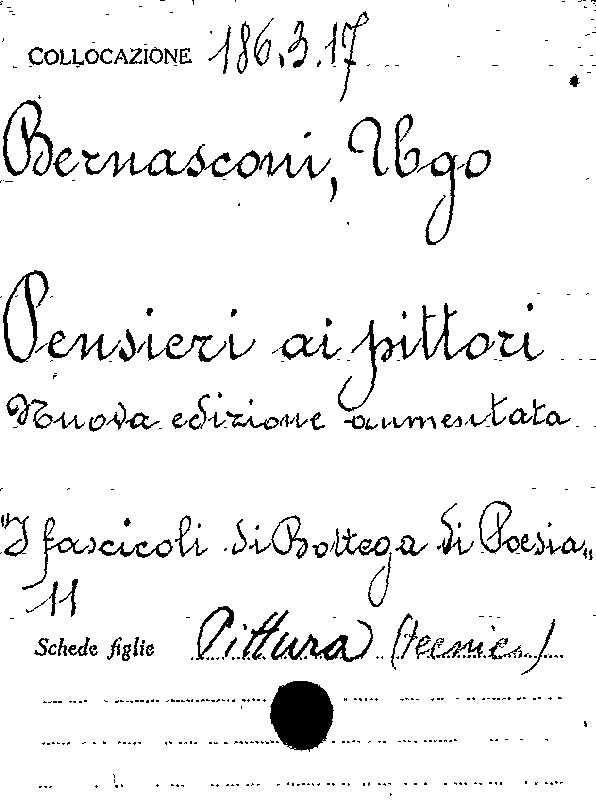 COLLOCAZIONE 186.3.17
Bernasconi, Ugo
Pensieri ai pittori
Nuova edizione aumentata
"I fascicoli di Bottega di Poesia„
11
Schede figlie Pittura (tecnica)